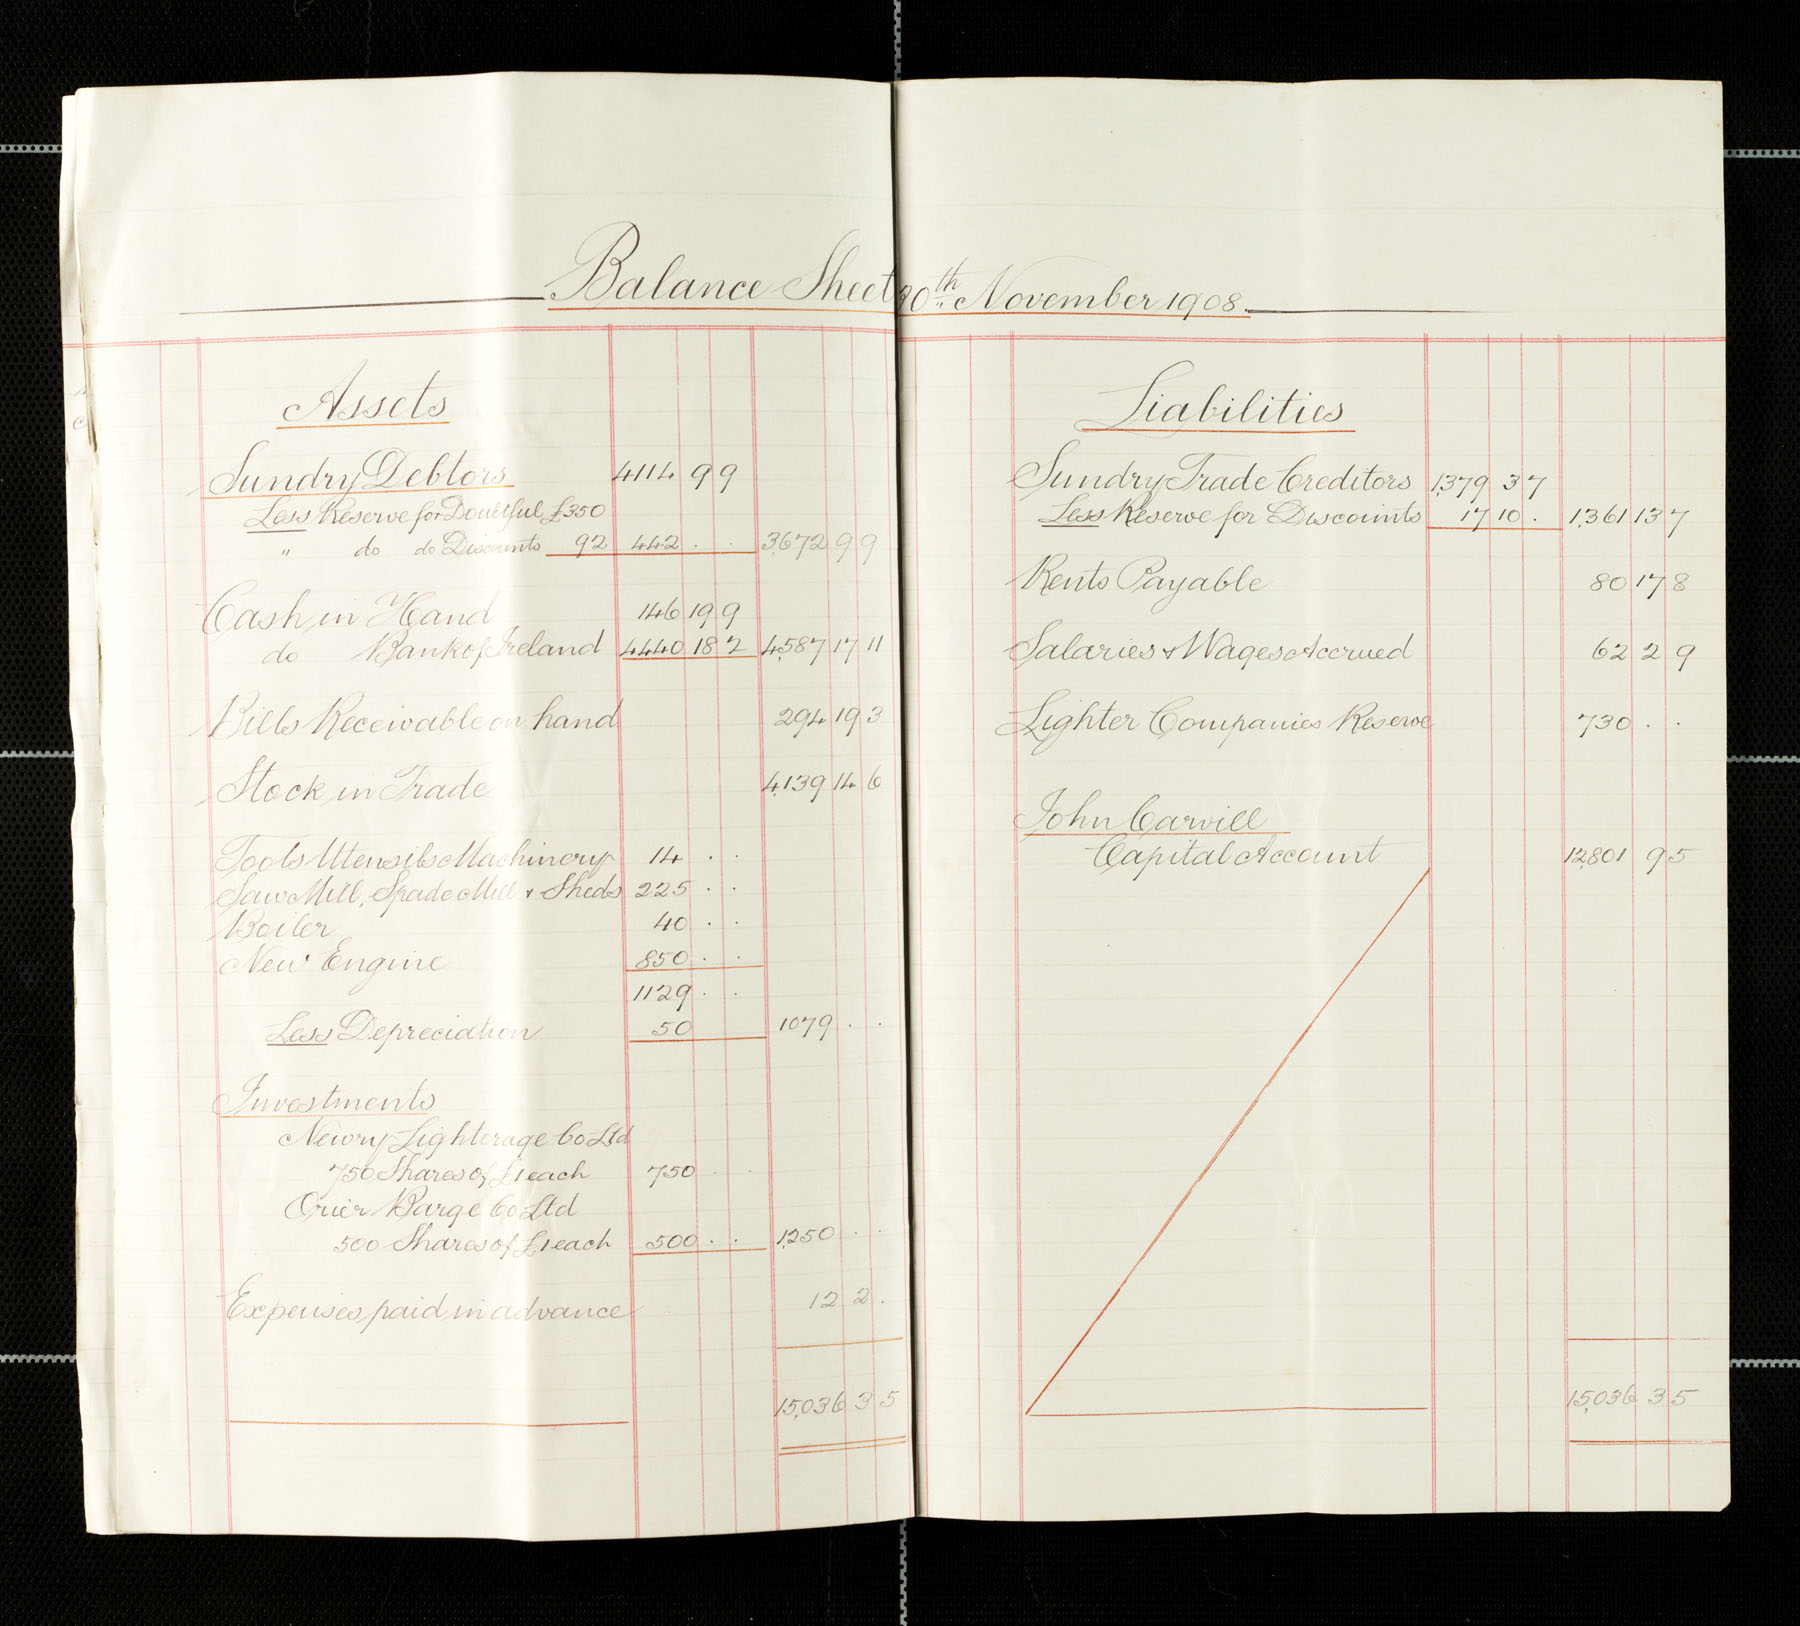 Balance Sheet 30th November 1908.
Assets
Sundry Debtors 4114 9 9
Less Reserve for Doubtful £350
" do do Discounts 92 442 . . 3,672 9 9
Cash in Hand 146 19 9
do Bank of Ireland 4440 18 2 4,587 17 11
Bills Receivable on hand 294 19 3
Stock in Trade 4,139 14 6
Tools Utensils Machinery 14 . .
Saw Mill, Spade Mill & Sheds 225 . .
Boiler 40 . .
New Engine 850 . .
1129 . .
Less Depreciation 50 1079 . .
Investments
Newry Lighterage Co Ltd
750 Shares of £1 each 750 . .
Orier Barge Co Ltd
500 Shares of £1 each 500 . . 1,250 . .
Expenses paid in advance 12 2 .
15,036 3 5
Liabilities
Sundry Trade Creditors 1,379 3 7
Less Reserve for Discounts 17 10 . 1,361 13 7
Rents Payable 80 17 8
Salaries & Wages Accrued 62 2 9
Lighter Companies Reserve 730 . .
John Carvill
Capital Account 12,801 9 5
15,036 3 5